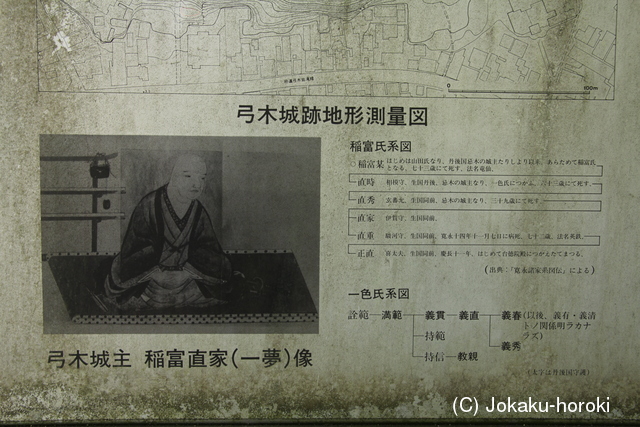 0
100m
弓木城跡地形測量図
弓木城主 稲富直家(一夢)像
稲富氏系図
稲富某 はじめは山田氏なり、丹後国忌木の城主たりしより以来、あらためて稲富氏
となる、七十三歳にて死す、法名竜仙、
直時 相模守、生国丹後、忌木の城主なり、一色氏につかふ、六十三歳にて死す、
直秀 玄蕃允、生国同前、忌木の城主なり、三十九歳にて死す、
直家 伊賀守、生国同前、
直重 駿河守、生国同前、寛永十四年十一月七日に病死、七十二歳、法名英鉄、
正直 喜太夫、生国同前、慶長十一年、はじめて台徳院殿につかえたてまつる、
(出典:「寛永諸家系図伝」による)
一色氏系図
詮範 満範 義貫 義直 義春(以後、義有・義清
トノ関係明ラカナ
ラズ)
義秀
持範
持信 教親
(太字は丹後国守護)
(C) Jokaku-horoki